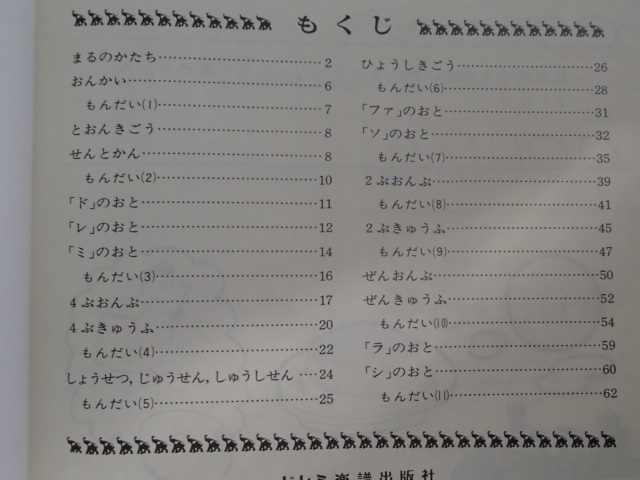 もくじ
まるのかたち……………………2
おんかい……………………6
もんだい(1)……………………7
とおんきごう……………………8
せんとかん……………………8
もんだい(2)……………………10
「ド」のおと……………………11
「レ」のおと……………………12
「ミ」のおと……………………14
もんだい(3)……………………16
4ぶおんぷ……………………17
4ぶきゅうふ……………………20
もんだい(4)……………………22
しょうせつ,じゅうせん,しゅうしせん……24
もんだい(5)……………………25
ひょうしきごう……………………26
もんだい(6)……………………28
「ファ」のおと……………………31
「ソ」のおと……………………32
もんだい(7)……………………35
2ぶおんぷ……………………39
もんだい(8)……………………41
2ぶきゅうふ……………………45
もんだい(9)……………………47
ぜんおんぷ……………………50
ぜんきゅうふ……………………52
もんだい(10)……………………54
「ラ」のおと……………………59
「シ」のおと……………………60
もんだい(11)……………………62
ドレミ楽譜出版社